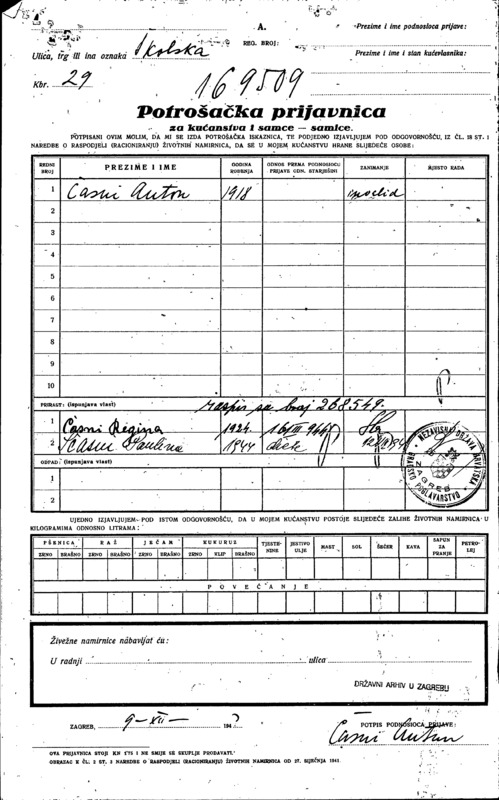 A.
REG. BROJ:
Prezime i ime podnosioca prijave:
Ulica, trg ili ina oznaka Školska
Prezime i ime i stan kućevlasnika:
Kbr. 29
169509
Potrošačka prijavnica
za kućanstva i samce – samice.
POTPISANI OVIM MOLIM, DA MI SE IZDA POTROŠAČKA ISKAZNICA, TE PODJEDNO IZJAVLJUJEM POD ODGOVORNOŠĆU, IZ ČL. 18 ST. 1
NAREDBE O RASPODJELI (RACIONIRANJU) ŽIVOTNIH NAMIRNICA, DA SE U MOJEM KUĆANSTVU HRANE SLIJEDEĆE OSOBE:
REDNI BROJ PREZIME I IME GODINA ROĐENJA ODNOS PREMA PODNOSIOCU PRIJAVE ODN. STARJEŠINI ZANIMANJE MJESTO RADA
1 Časni Anton 1918 invalid
2
3
4
5
6
7
8
9
10
PRIRAST: (ispunjava vlast) raspis sa broj 268.549.
1 Časni Regina 1924.
2 Časni Paulina 1944 dijete
NEZAVISNA DRŽAVA HRVATSKA
GRADSKO POGLAVARSTVO
ZAGREB
OTPAD: (ispunjava vlast)
1
2
UJEDNO IZJAVLJUJEM POD ISTOM ODGOVORNOŠĆU, DA U MOJEM KUĆANSTVU POSTOJE SLIJEDEĆE ZALIHE ŽIVOTNIH NAMIRNICA U
KILOGRAMIMA ODNOSNO LITRAMA:
PŠENICA RAŽ JEČAM KUKURUZ TJESTENINE JESTIVO ULJE MAST SOL ŠEĆER KAVA SAPUN ZA PRANJE PETROLEJ
ZRNO BRAŠNO ZRNO BRAŠNO ZRNO BRAŠNO ZRNO KLIP BRAŠNO
POVEĆANJE
Živežne namirnice nabavljat ću:
U radnji ulica
DRŽAVNI ARHIV U ZAGREBU
ZAGREB, 9-XII- 194
POTPIS PODNOSIOCA PRIJAVE:
Časni Anton
OVA PRIJAVNICA STOJI KN 1'75 I NE SMIJE SE SKUPLJE PRODAVATI.
OBRAZAC K ČL. 2 ST. 3 NAREDBE O RASPODJELI (RACIONIRANJU) ŽIVOTNIH NAMIRNICA OD 27. SIJEČNJA 1941.